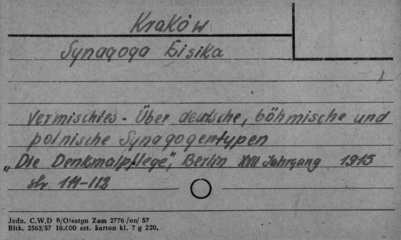 Kraków
Synagoga Eisika
Vermischtes - Über deutsche, böhmische und
polnische Synagogentypen
„Die Denkmalpflege”, Berlin XVII Jahrgang 1915
str. 111-112
Jedn. C.W.D B/Olsztyn Zam 2776 /on/ 57
Bltk. 2563/57 10.000 szt. karton kl. 7 g 220.